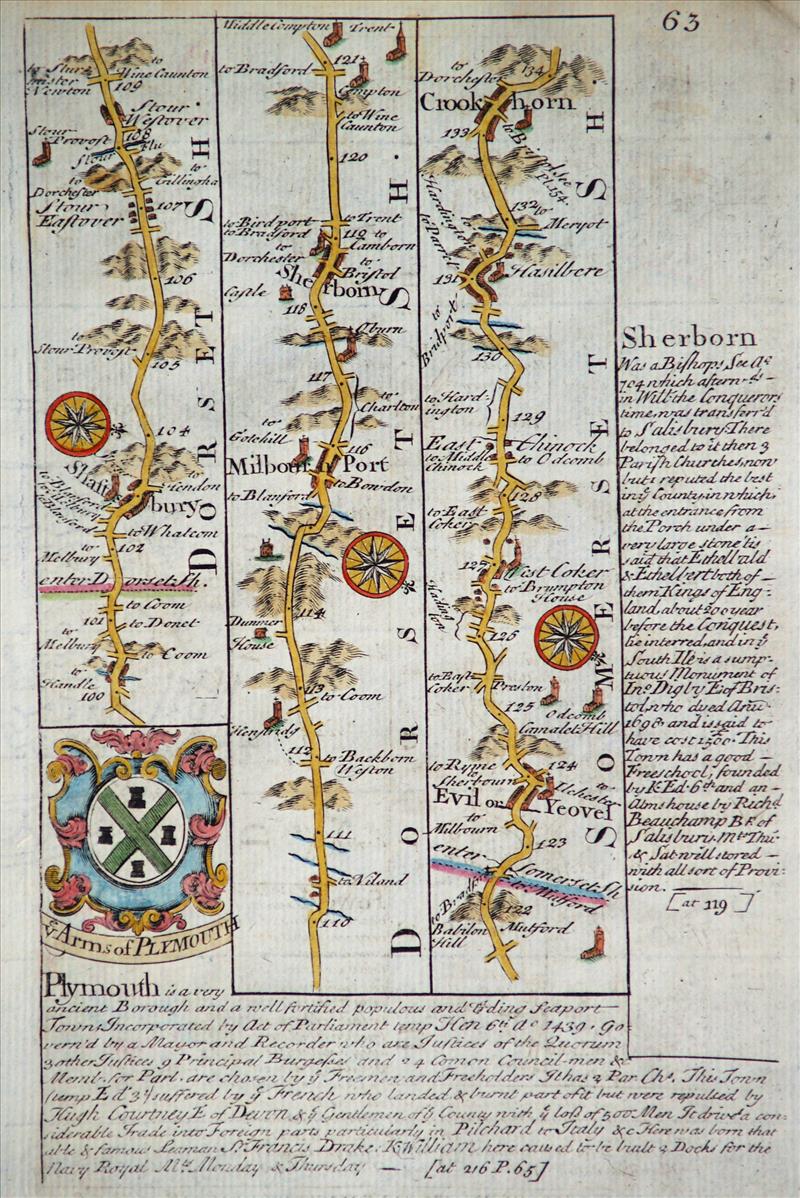 63
to Stur
mister
Newton
to
Wine Caunton
109
Stour
Westover
108
Stour
Provost
Stour
Flu
to
Gillingha
to
Dorchester
Stour
Eastover
107
106
to
Stour Provost
105
104
Shaftsbury
to Blanford
Blanford
to Hendon
to Whalcom
102
to
Melbury
enter Dorset Sh.
to Coom
101
to Donet
to
Melbury
to Coom
to
Handle
100
DORSET SH.
Middle Compton
Trent
to Bradford
121
Compton
to Wine
Caunton
120
to Birdport
to Bradford
to Trent
119
to
Camborn
to
Dorchester
to
Bristol
Sherborn
Castle
118
Oburn
117
to
Charlton
to
Gotehill
116
Milbourn Port
to Bowdon
to Blanford
114
Dunmer
House
113
to Coom
Henstridg
112
to Backborn
Weston
111
to Niland
110
DORSET SH.
to
Dorchester
134
Crookhorn
133
to Bristol See
Pl. 154
132
to
Meryot
to
Hardington
to Parret
Hasilbere
131
to
Bridport
130
to Hard-
ington
129
East Chinock
to Middle
Chinock
to Odcomb
128
to East
Coker
127
West Coker
to Brumpton
House
126
to East
Coker
Preston
125
Odcomb
Camalet Hill
to Ryme
124
to
Sherbourn
to
Ilchester
Evil or Yeovel
to
Milbourn
123
enter Somerset Sh
to Mutford
to Bradford
122
Babilon
Hill
Mutford
SOMERSET SH.
Sherborn
Was a Bishops See Ao
704 which afterwds
in Will the Conquerors
time, was transferr'd
to Salisbury. There
belonged to it then 3
Parish Churches, now
but 1 reputed the best
in ye County, in which,
at the entrance from
the Porch under a
very large stone 'tis
said that Ethelbald
& Ethelbert both of
them Kings of Eng-
land, about 200 year
before the Conquest,
lie interred, and in ye
South Ile is a sump-
tuous Monument of
Ino Digby E of Bris-
tol, who dyed Ano
1698 and is said to
have cost 1500. This
Town has a good
Freeschool, founded
by K Ed. 6th and an
Almshouse by Richd
Beauchamp Bp. of
Salisbury. Mts Thu
& Sat well stored
with all sort of Provi-
sion.
[at 119]
ye Arms of PLYMOUTH
Plymouth is a very
ancient Borough and a well fortified populous and trading seaport
Town, Incorporated by Act of Parliament temp Hen 6th Ao 1439. Go
vern'd by a Mayor and Recorder who are Justices of the Quorum
2 other Justices 9 Principal Burgesses and 24 Comon Council-men &
Memb. for Parl. are chosen by ye Freemen and Freeholders It has 2 Par Chs. This Town
(temp E d 3d) suffered by ye French who landed & burnt part of it but were repulsed by
Hugh Courtney E of Devon & ye Gentlemen of ye County with ye loss of 500 Men It drives a con
siderable Trade into Foreign parts particularly in Pilchard to Italy &c Here was born that
able & famous Seaman Sr Francis Drake. K William here caused to be built 2 Docks for the
Navy Royal Mts. Monday & Thursday — [at 216 P. 65]